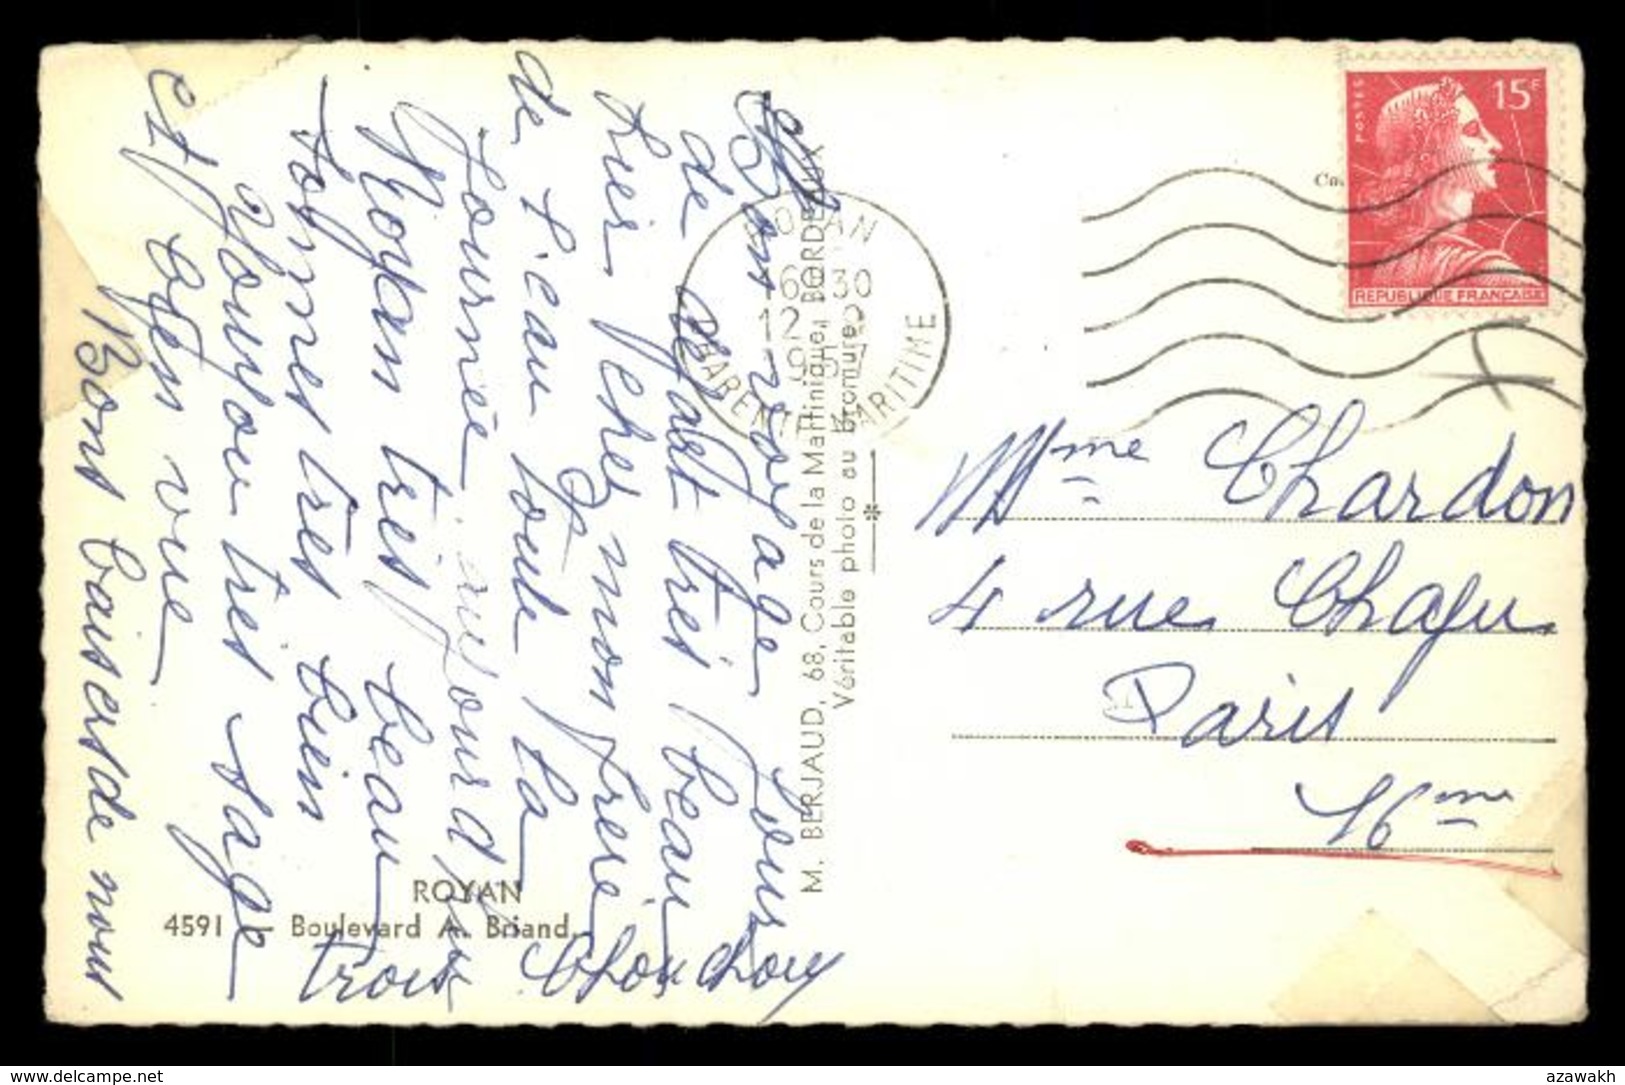 Bon voyage jour
de départ très beau
hier chez mon frère
de l'eau toute la
journée aujourd'hui
Royan très beau
sommes très bien
Youyou très sage
et bien vue
Bons baisers de nous
trois Chouchou
ROYAN
4591 - Boulevard A. Briand.
M. BERJAUD, 68, Cours de la Martinique, BORDEAUX
Véritable photo au bromure
ROYAN
16H30
12
1957
CHARENTE MARITIME
POSTES
15F
REPUBLIQUE FRANÇAISE
Mme Chardon
4 rue Chapu
Paris
16eme
www.delcampe.net
azawakh